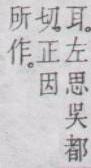 耳。左思吳都
切。正因
所作。